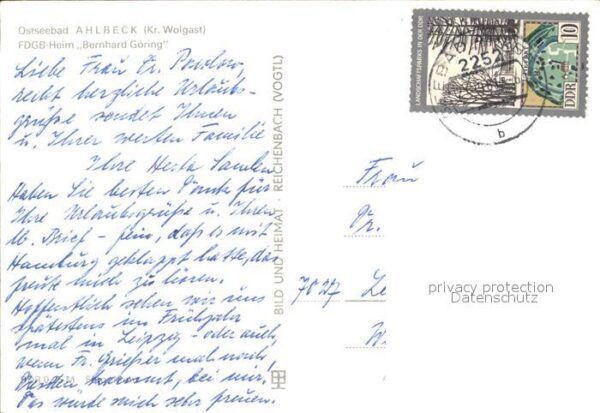 Ostseebad AHLBECK (Kr. Wolgast)
FDGB-Heim „Bernhard Göring"
Liebe Frau Fr. Pawlow,
recht herzliche Urlaubs-
grüße sendet Ihnen
u. Ihrer werten Familie
Ihre Herta
Haben Sie besten Dank für
Ihre Urlaubsgrüße u. Ihren
lb. Brief - fein, daß es mit
Hamburg geklappt hatte, das
freute mich zu lesen.
Hoffentlich sehen wir uns
spätestens im Frühjahr
mal in Leipzig - oder auch,
wenn Fr. Grießer mal nach
Dresden kommt, bei mir!
Das würde mich sehr freuen.
BILD UND HEIMAT · REICHENBACH (VOGTL)
LANDSCHAFTSPARKS IN DER DDR
10
DDR
2252
b
Frau
7027 Le
W
privacy protection
Datenschutz